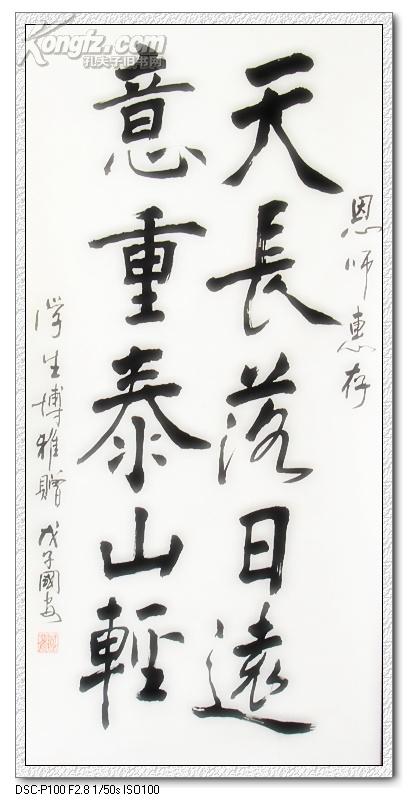 Kongfz.com
孔夫子旧书网
恩师惠存
天長落日遠
意重泰山輕
学生博雅贈 戊子國安
DSC-P100 F2.8 1/50s ISO100